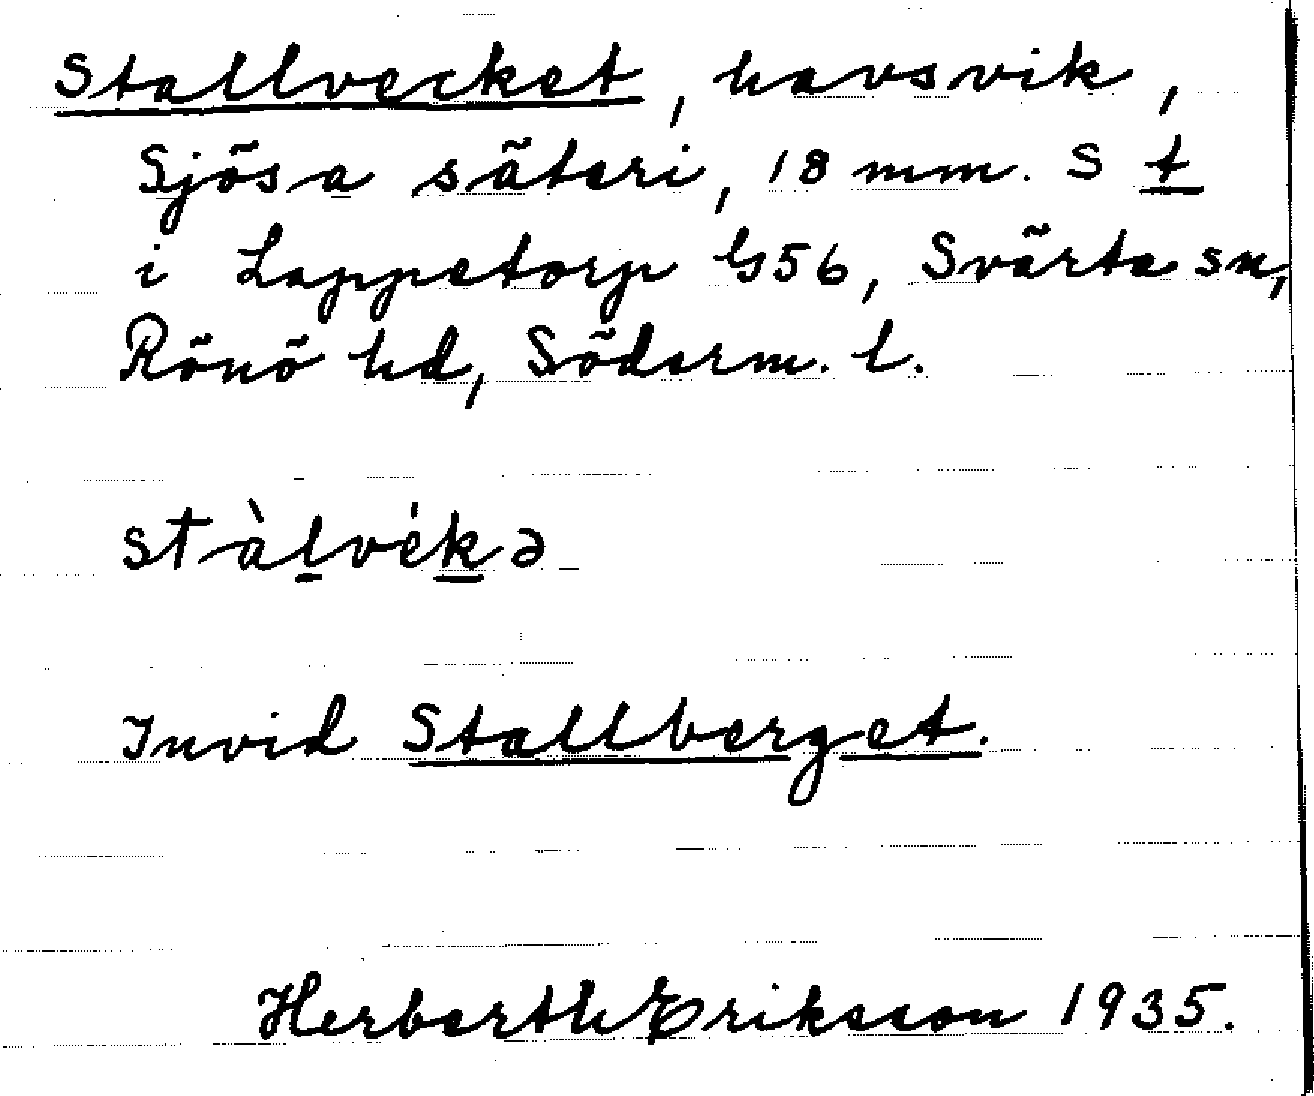 Stallvecket, havsvik,
Sjösa säteri, 18 mm. S t
i Lappetorp G56, Svärta sn,
Rönö hd, Söderm. l.
stàlvékə
Invid Stallberget.
Herberth Eriksson 1935.